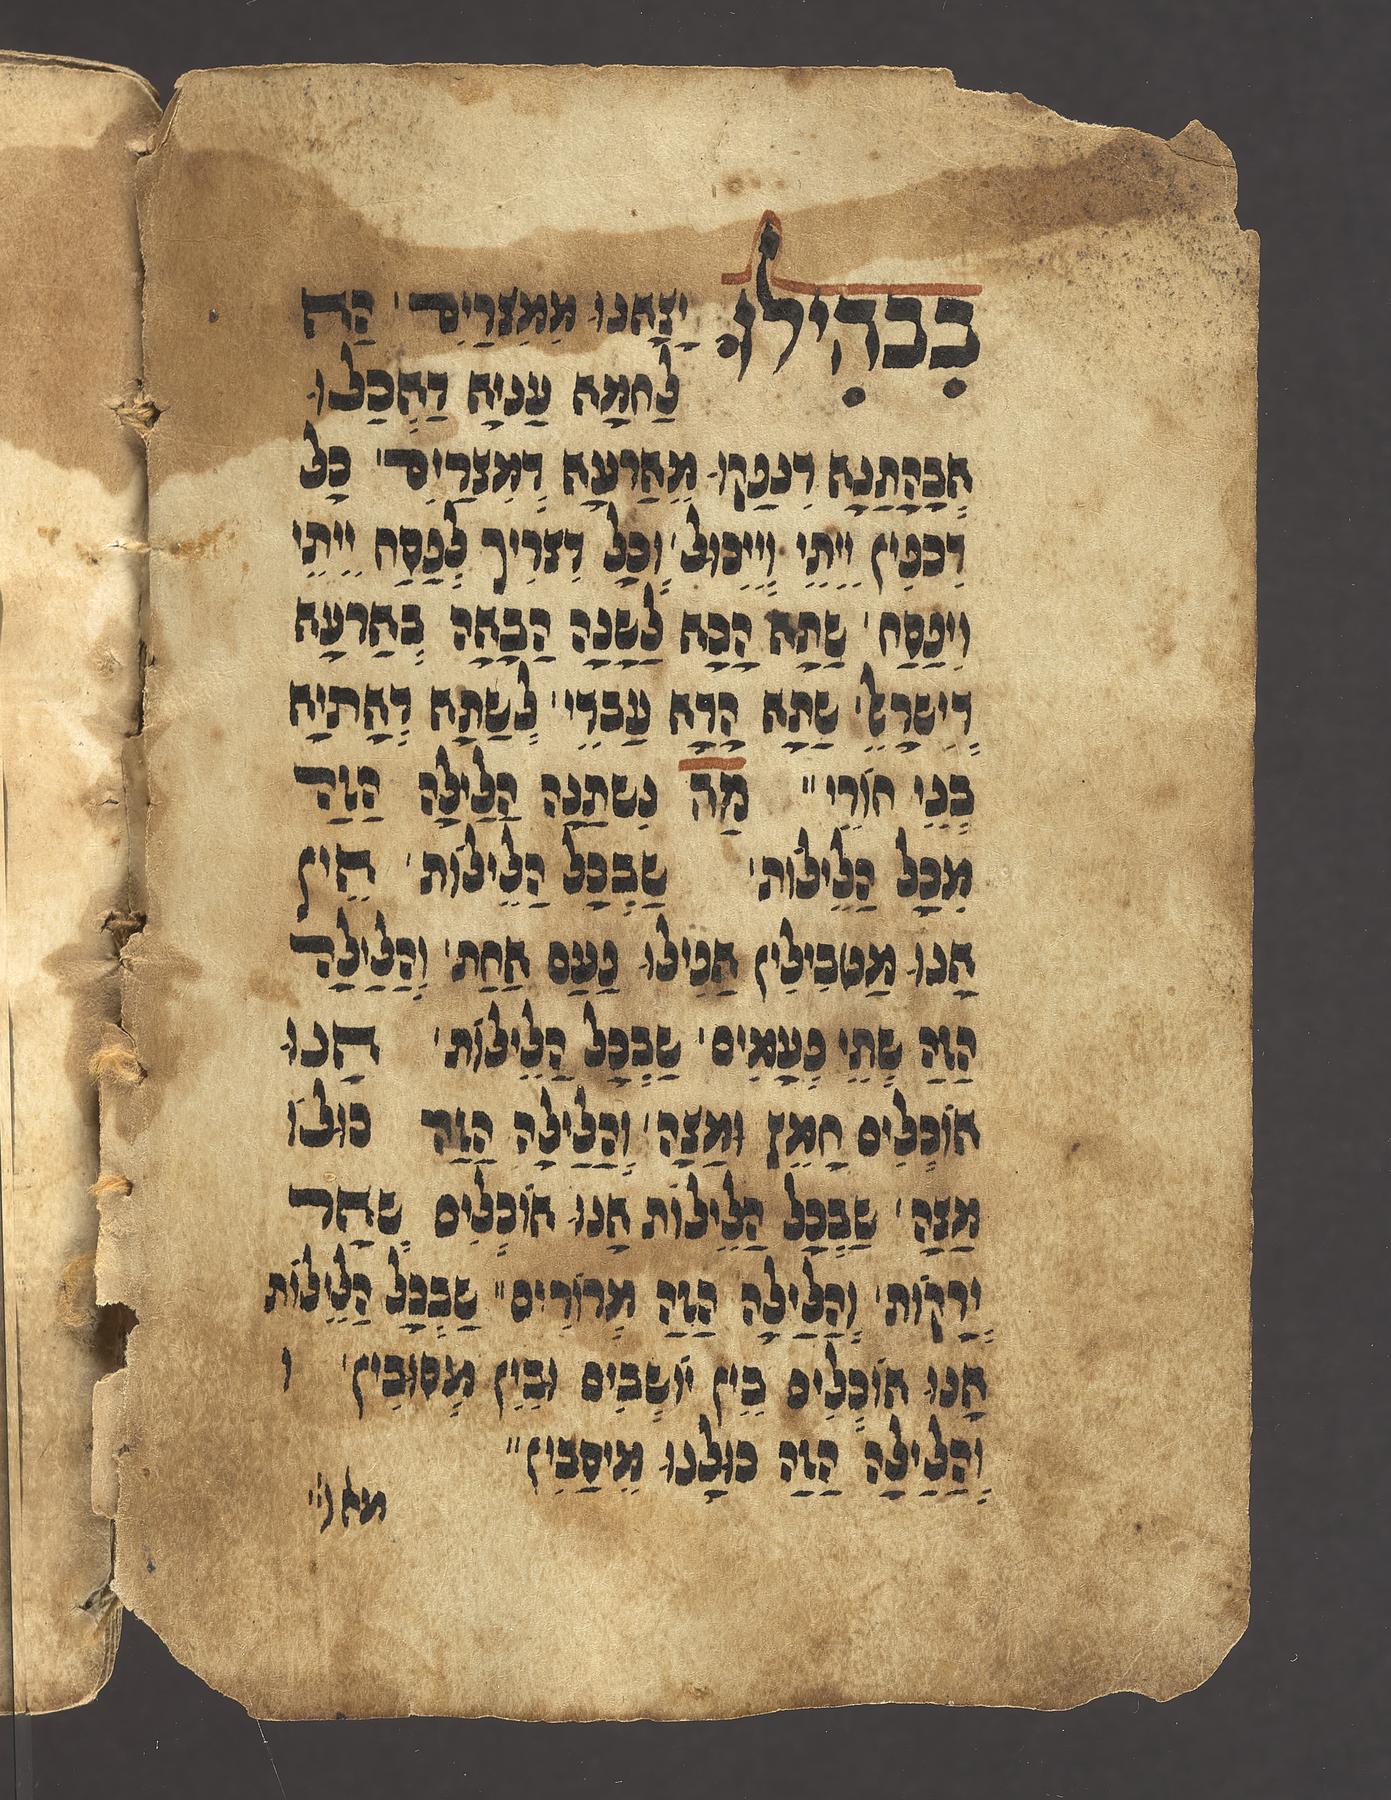 בִּבְהִילוּ יָצָאנוּ מִמִּצְרַיִם׳ הָא
לַחְמָא עַניָא דַאֲכַלוּ
אֲבָהָתַנָא דִנפַקוּ מֵאַרעָא דְמִצרַיִם׳ כָל
דִכפִין יֵיתֵי וְיֵיכוּל׳ וְכָל דִצרִיך לְפַסַח יֵיתֵי
וִיפַסַח׳ שַתָא הָכָא לַשָנָה הַבָאָה בְאַרעָא
דְישׂרָאֵל׳ שַתָא הָדָא עַבדֵי׳ לְשַתָא דְאָתיָא
בְנֵי חוֹרֵי״ מַה נִשתַנָה הַלַילָה הַזֶה
מִכָל הַלֵילוֹת׳ שַבְכָל הַלֵילוֹת׳ אֵין
אַנוּ מַטבִילִין אַפִילוּ פַעַם אַחַת׳ וְהַלַילָה
הַזֶה שְתֵי פְעָמִים׳ שַבְכָל הַלֵילוֹת׳ אַנוּ
אוֹכְלִים חָמֵץ וּמַצָה׳ וְהַלַילָה הַזֶה כוּלוֹ
מַצָה׳ שַבְכָל הַלֵילוֹת אַנוּ אוֹכְלִים שְאָר
יְרָקוֹת׳ וְהַלַילָה הַזֶה מְרוֹרִים״ שַבְכָל הַלֵילוֹת
אַנוּ אוֹכְלִים בֵין יוֹשְבִים וּבֵין מְסוּבִין׳ ו
וְהַלַילָה הַזֶה כוּלָנוּ מֵיסַבִין״